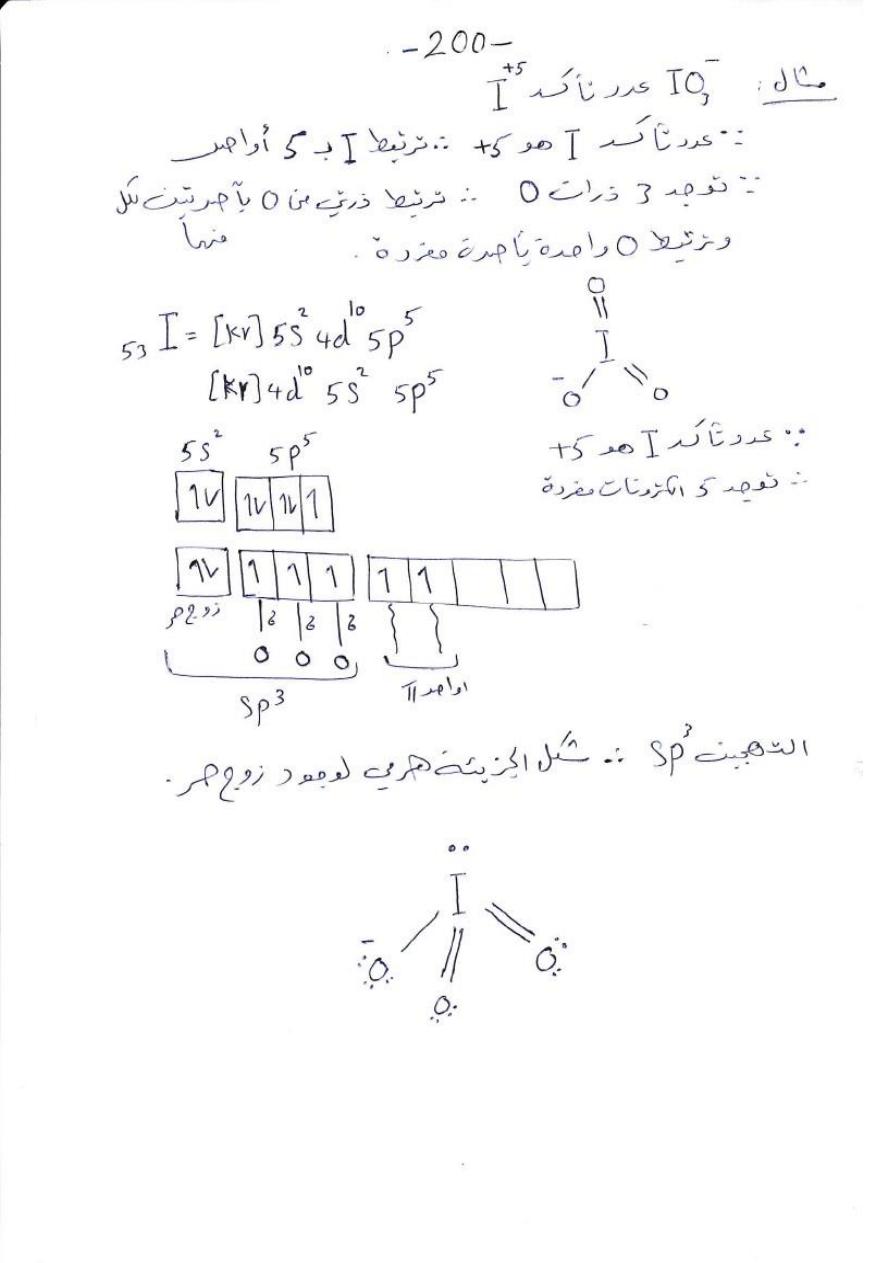 -200-
مثال: IO₃⁻ عدد تأكسد I⁺⁵
∵ عدد تأكسد I هو 5+ ∴ ترتبط I بـ 5 أواصر
∵ توجد 3 ذرات O ∴ ترتبط ذرتي من O بآصرتين لكل منهما
وترتبط O واحدة بأصرة مفردة.
O
I
⁻O O
₅₃I = [Kr] 5s² 4d¹⁰ 5p⁵
[Kr] 4d¹⁰ 5s² 5p⁵
∵ عدد تأكد I هو 5+
∴ توجد 5 الكترونات مفردة
5s² 5p⁵
1L 1L 1L 1
1L 1 1 1 1 1
زوج حر
O O O
اواصر π
sp³
التهجين sp³ ∴ شكل الجزيئة هرمي لوجود زوج حر.
I
⁻O O
O